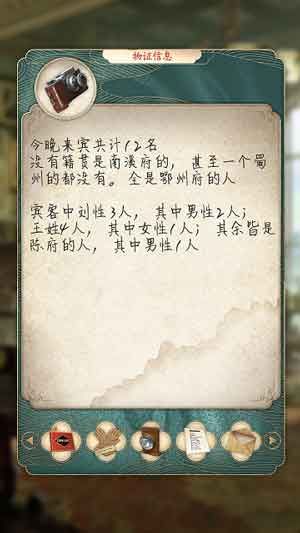 物证信息
今晚来宾共计12名
没有籍贯是南溪府的，甚至一个蜀
州的都没有。全是鄂州府的人
宾客中刘性3人，其中男性2人；
王姓4人，其中女性1人；其余皆是
陈府的人，其中男性1人